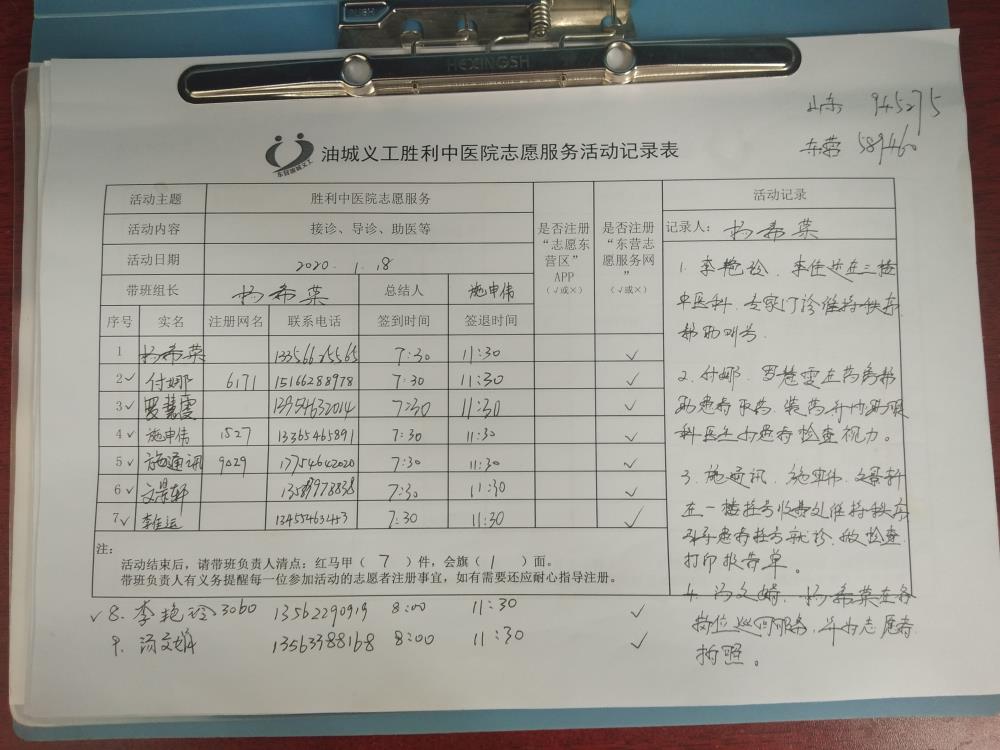 HEXINGSH
山东 945275
东营 589460
东营油城义工
油城义工胜利中医院志愿服务活动记录表
活动主题 胜利中医院志愿服务
活动内容 接诊、导诊、助医等
活动日期 2020.1.18
带班组长 杨希菜 总结人 施申伟
是否注册“志愿东营区”APP（√或×）
是否注册“东营志愿服务网”（√或×）
序号 实名 注册网名 联系电话 签到时间 签退时间
1 杨希菜 13356625565 7:30 11:30 √
2√ 付娜 6171 15166288978 7:30 11:30 √
3√ 罗慧雯 13954632014 7:30 11:30 √
4√ 施申伟 1527 13365465891 7:30 11:30 √
5√ 施通讯 9029 17754642020 7:30 11:30 √
6√ 文景轩 7:30 11:30 √
7√ 李佳运 13455463453 7:30 11:30 √
注：
活动结束后，请带班负责人清点：红马甲（7）件，会旗（1）面。
带班负责人有义务提醒每一位参加活动的志愿者注册事宜，如有需要还应耐心指导注册。
√8.李艳玲 3060 13562290919 8:00 11:30 √
9.汤文娟 13563388168 8:00 11:30 √
活动记录
记录人：杨希菜
1.李艳玲、李佳运在三楼
中医科、专家门诊维持秩序
帮助叫号
2.付娜、罗慧雯在药房帮
助患者取药、装药并协助眼
科医生为患者检查视力。
3.施通讯、施申伟、文景轩
在一楼挂号收费处维持秩序
引导患者挂号就诊、做检查
打印报告单。
4.汤文娟、杨希菜在各
岗位巡回服务，并为志愿者
拍照。